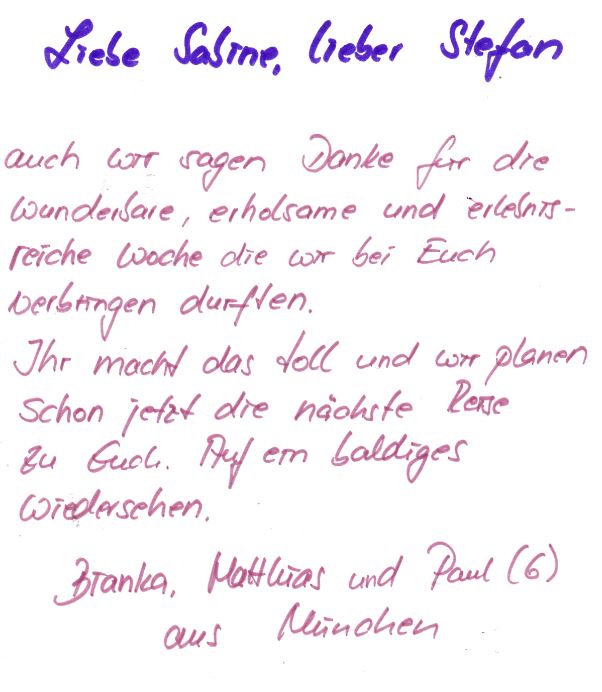 Liebe Sabine, lieber Stefan
auch wir sagen Danke für die
wunderbare, erholsame und erlebnis-
reiche Woche die wir bei Euch
verbringen durften.
Ihr macht das toll und wir planen
schon jetzt die nächste Reise
zu Euch. Auf ein baldiges
Wiedersehen.
Bianka, Matthias und Paul (6)
aus München